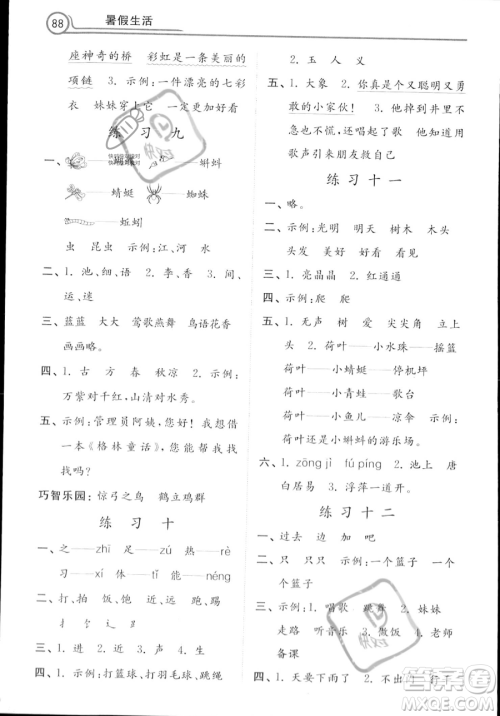 88 暑假生活
座神奇的桥 彩虹是一条美丽的
项链 3. 示例:一件漂亮的七彩
衣 妹妹穿上它 一定更加好看
练习九
一、 蝌蚪
蜻蜓 蜘蛛
蚯蚓
虫 昆虫 示例:江、河、水
二、1. 池、细、语 2. 李、香 3. 间
、运、迷
三、蓝蓝 大大 莺歌燕舞 鸟语花香
画画略。
四、1. 古 方 春 秋凉 2. 示例:
万紫对千红,山清对水秀。
五、示例:管理员阿姨,您好!我想借
一本《格林童话》,您能帮我找一
找吗?
巧智乐园:惊弓之鸟 鹤立鸡群
练习十
一、之—zhī 足—zú 热—rè
习—xí 体 能—néng
二、打、拍 饭、饱 近、远 跑、踢
扌 饣 辶
三、1. 进 2. 近 3. 声 4. 生
四、1. 示例:打篮球、打羽毛球、跳绳
2. 玉 人 义
五、1. 大象 2. 你真是个又聪明又勇
敢的小家伙! 3. 他掉到井里不
也不慌,还唱起了歌 4. 他用
歌声引来朋友救自己
练习十一
一、略。
二、示例:光明 明天 树木 木头
头发
三、1. 亮晶晶 2. 红通通
四、示例:爬 爬
五、1. 无声 树 爱 尖尖角 立上
头 2. 荷叶——小水珠——摇篮
荷叶——小蜻蜓——停机坪
荷叶——小青蛙——歌台
荷叶——小鱼儿——凉伞 示例:
荷叶是小蝌蚪的游乐场。
六、1. zōng jì fú píng 2. 池上 唐
白居易 3. 浮萍一道开。
练习十二
一、过去 边 加
二、只 只 只 示例:一个篮子
一个
三、示例:1. 唱歌 跳 2. 妹妹
走路 听音乐 3. 做饭 4. 老师
备课
四、1. 天要下雨了 2. 不出